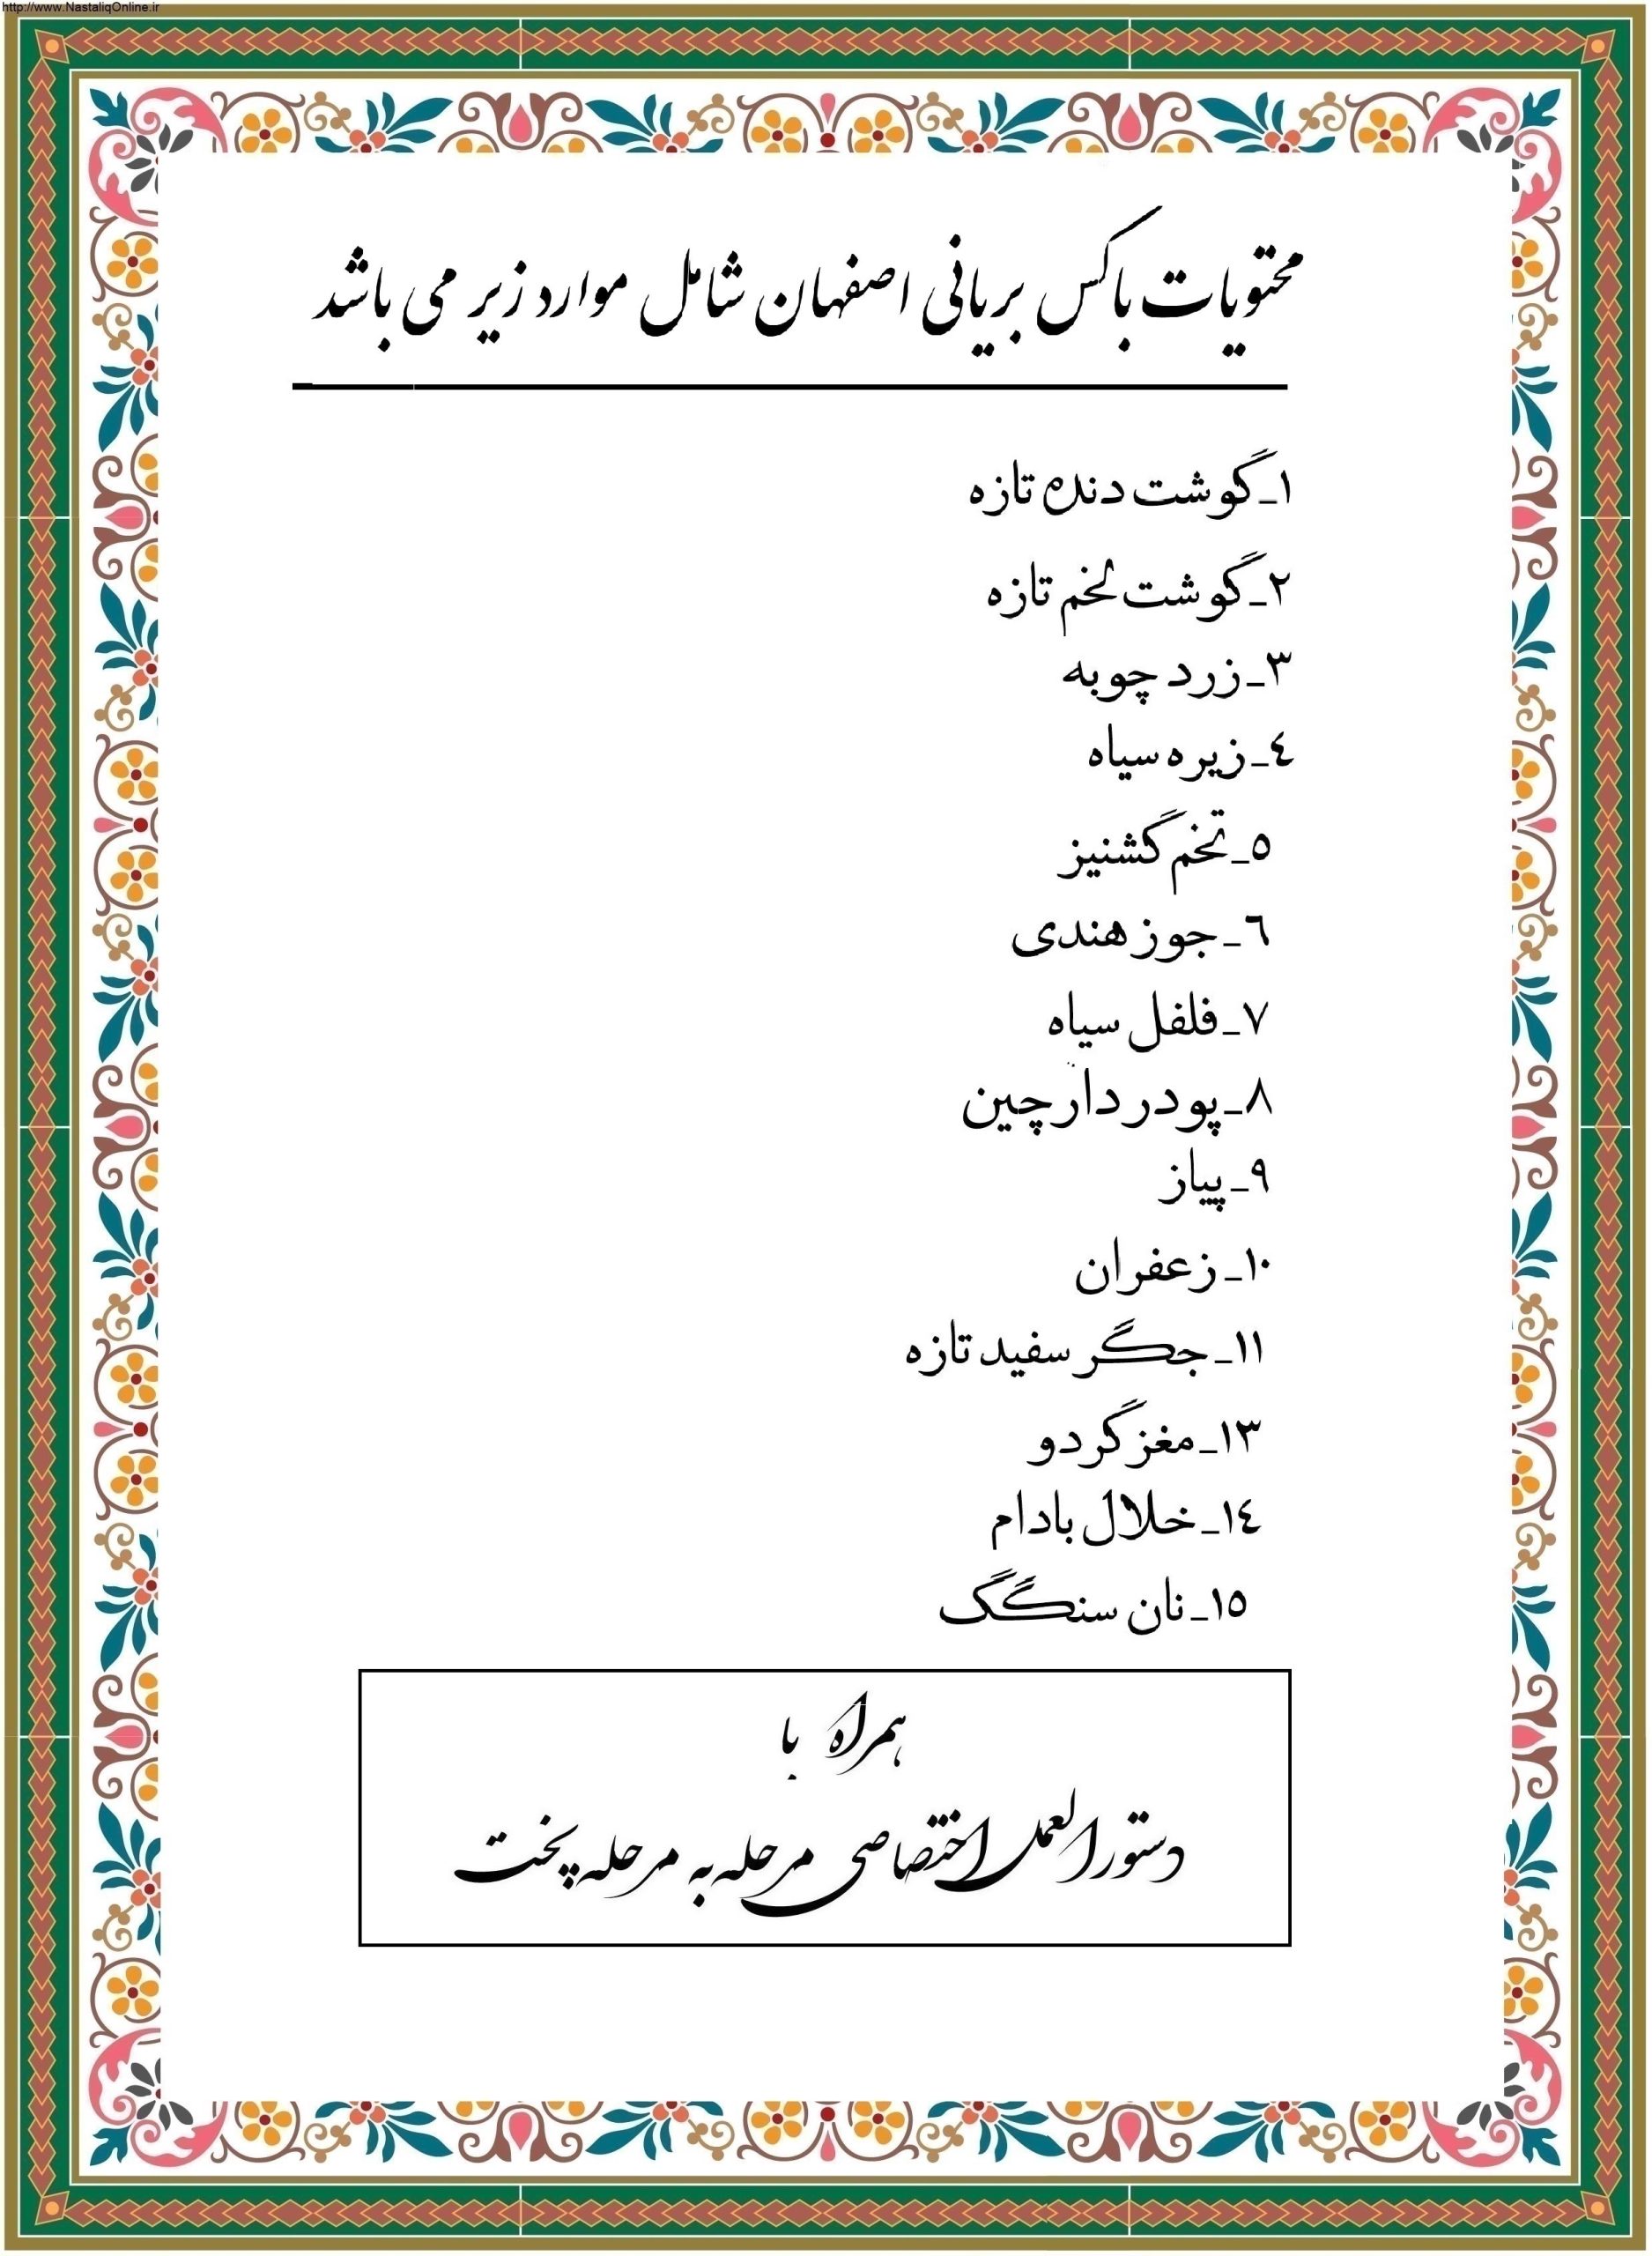 http://www.NastaliqOnline.ir
محتویات باکس بریانی اصفهان شامل موارد زیر می باشد
۱_گوشت دنده تازه
۲_گوشت لخم تازه
۳_زرد چوبه
٤_زیره سیاه
۵_تخم گشنیز
٦_جوز هندی
۷_فلفل سیاه
۸_پودر دارچین
۹_پیاز
۱۰_زعفران
۱۱_جگر سفید تازه
۱۳_مغز گردو
۱٤_خلال بادام
۱۵_نان سنگگ
همراه با
دستورالعمل اختصاصی مرحله به مرحله پخت